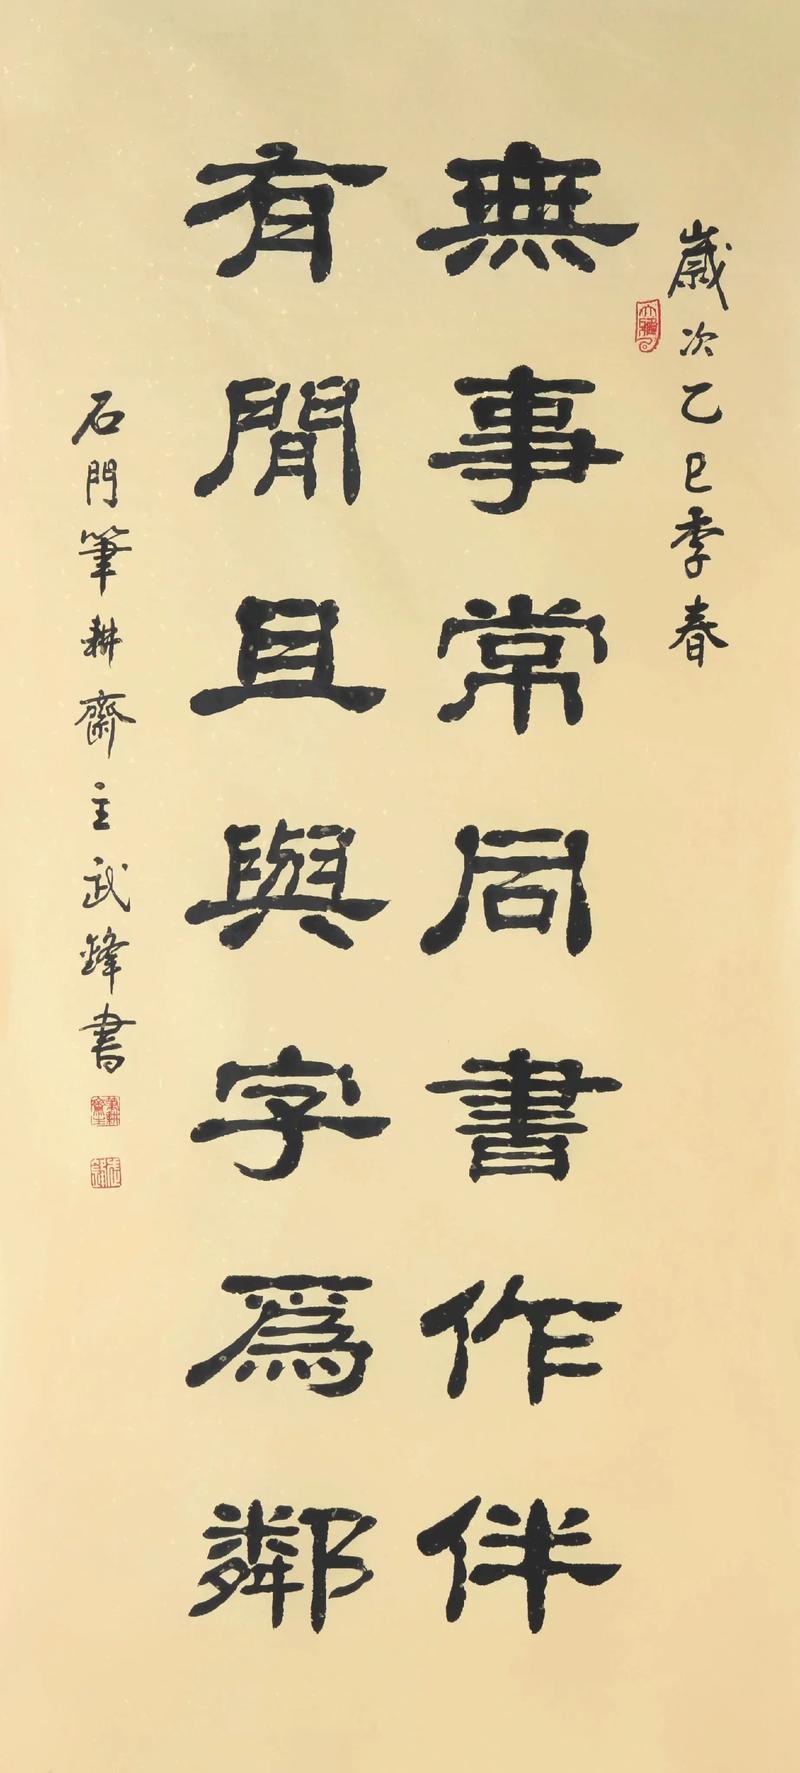 歲次乙巳季春
無事常同書作伴
有閒且與字為鄰
石門筆耕齋主武鋒書